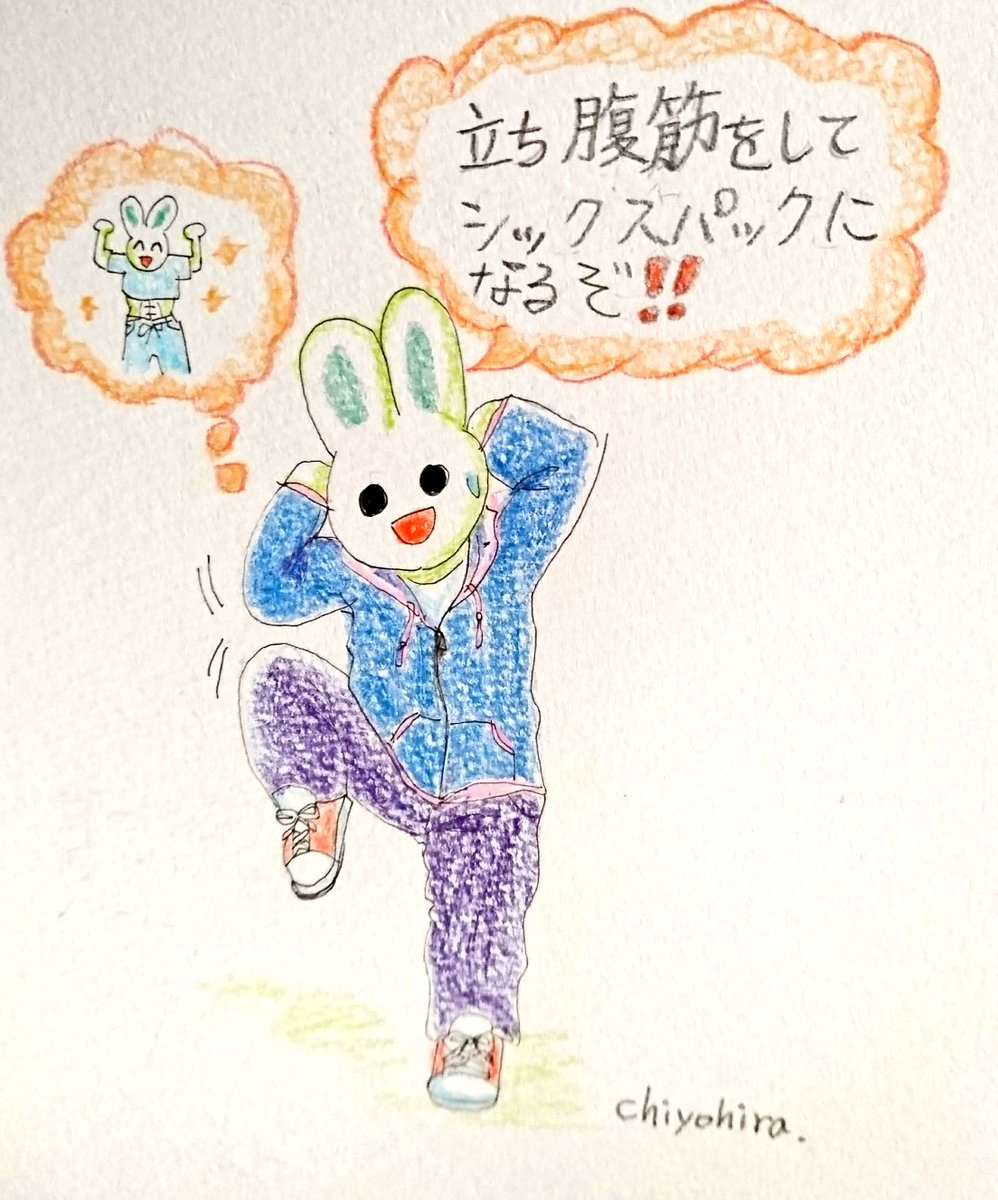 立ち腹筋をして
シックスパックに
なるぞ!!
chiyohira.